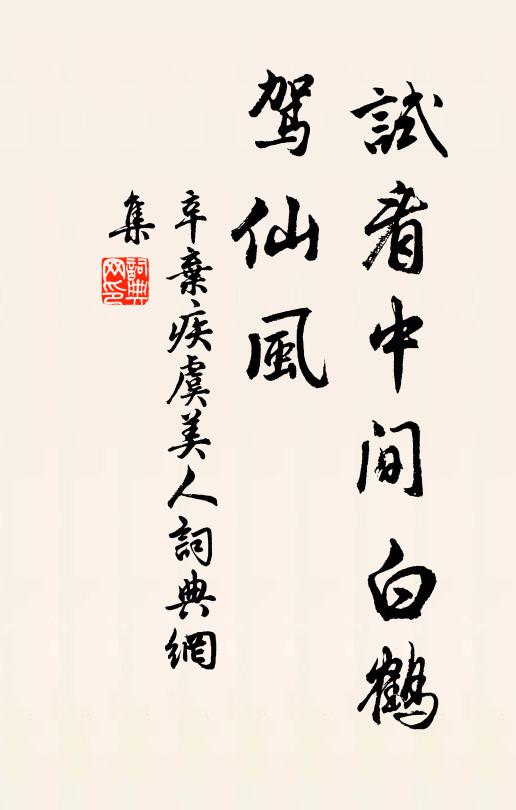 試看中间白鶴
駕仙風
辛棄疾虞美人詞典網
集
詞典
网印